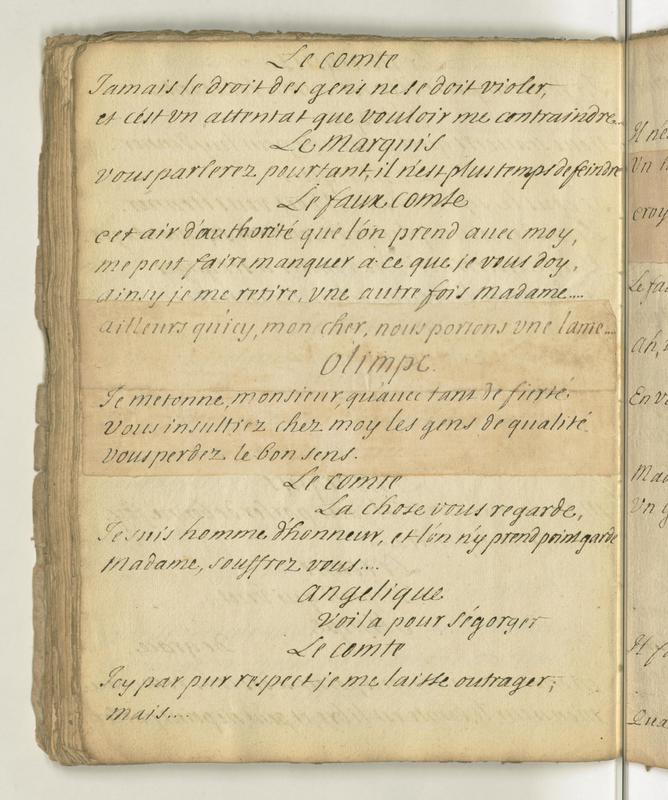 Le comte
Jamais le droit des gens ne se doit violer,
et c'est vn attentat que vouloir me contraindre...
Le Marquis
vous parlerez pourtant, il n'est plus temps de feindre
Le faux comte
cet air d'authorité que l'on prend auec moy,
me peut faire manquer a ce que je vous doy,
ainsy je me retire, vne autre fois Madame....
ailleurs qu'icy, mon cher, nous portons vne lame...
Olimpe.
Je m'etonne, monsieur, qu'auec tant de fierté,
vous insultiez chez moy les gens de qualité
vous perdez le bon sens.
Le comte
La chose vous regarde,
Je suis homme d'honneur, et l'on n'y prend point garde
Madame, souffrez vous....
angelique
voila pour s'égorger
Le comte
Icy par pur respect je me laisse outrager;
mais..
Il n'e
Vn
croy
Le fa
Ah,
En v
Mad
Vn
Il f
Qua